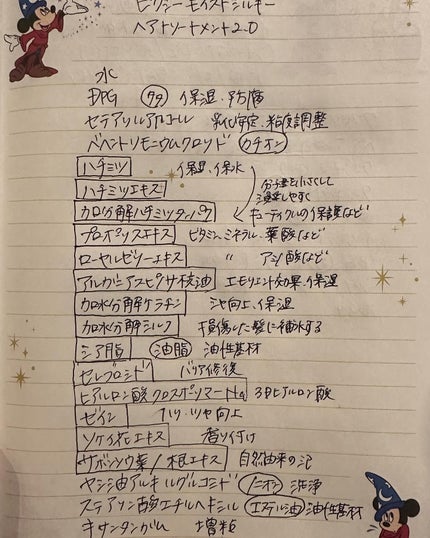 ピクシー モイストシルキー
ヘアトリートメント2.0
水
DPG 保湿、防腐
セテアリルアルコール 乳化安定、粘度調整
ベヘントリモニウムクロリド カチオン
ハチミツ 保湿、保水
ハチミツエキス 分子量を小さくして
浸透しやすく
加水分解ハチミツタンパク キューティクルの保護など
プロポリスエキス ビタミン、ミネラル、葉酸など
ローヤルゼリーエキス 〃 アミノ酸など
アルガニアスピノサ核油 エモリエント効果、保湿
加水分解ケラチン ツヤ向上、保湿
加水分解シルク 損傷した髪に補水する
シア脂 油脂 油性基材
セレブロシド バリア修復
ヒアルロン酸クロスポリマーNa 3Dヒアルロン酸
ゼイン ハリ・ツヤ向上
ソケイ花エキス 香り付け
サボンソウ葉/根エキス 自然由来の泡
ヤシ油アルキルグルコシド ノニオン 洗浄
ステアリン酸エチルヘキシル エステル油 油性基材
キサンタンガム 増粘